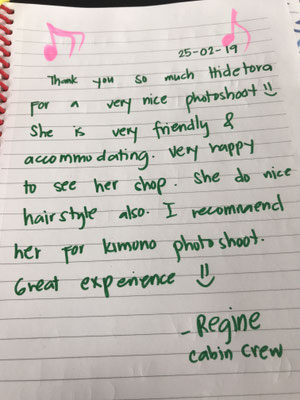 25-02-19
Thank you so much Hidetora
For a very nice photoshoot
She is very friendly &
accommodating. Very happy
to see her shop. She do nice
hairstyle also. I recommend
her for kimono photoshoot.
Great experience
- Regine
cabin crew